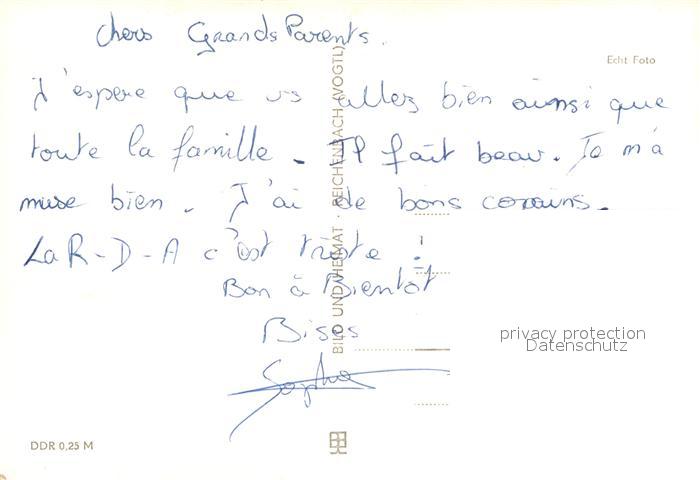 Chers Grands Parents.
Echt Foto
J'espere que vs allez bien ainsi que
toute la famille. Il fait beau. Je m'a
muse bien. J'ai de bons copains.
La R-D-A c'est triste !
Bon à Bientot
Bises
Sophie
BILD UND HEIMAT · REICHENBACH (VOGTL)
privacy protection
Datenschutz
DDR 0,25 M